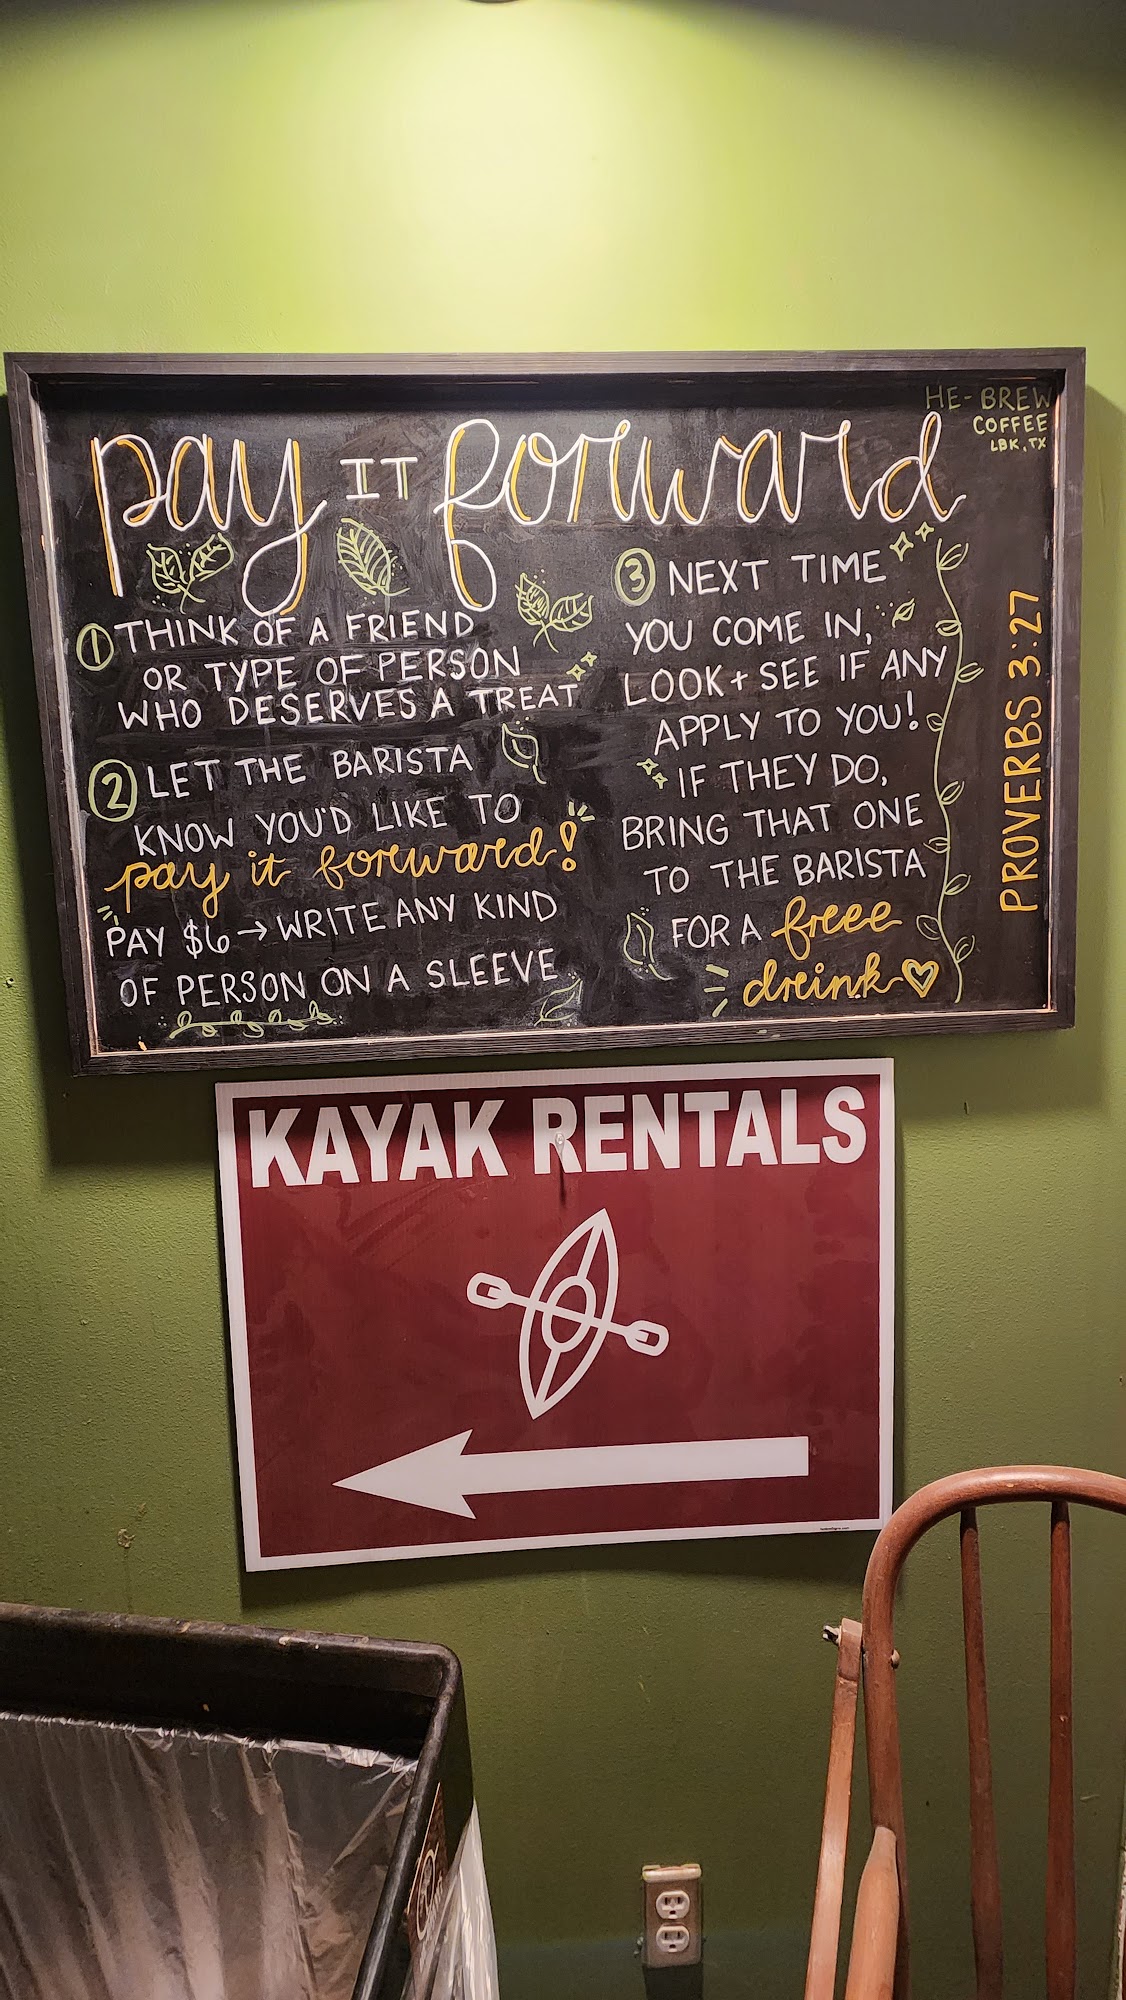 pay IT forward
HE-BREW
COFFEE
LBK, TX
① THINK OF A FRIEND
OR TYPE OF PERSON
WHO DESERVES A TREAT
② LET THE BARISTA
KNOW YOU'D LIKE TO
pay it forward!
PAY $6 → WRITE ANY KIND
OF PERSON ON A SLEEVE
③ NEXT TIME
YOU COME IN,
LOOK + SEE IF ANY
APPLY TO YOU!
IF THEY DO,
BRING THAT ONE
TO THE BARISTA
FOR A free
drink
PROVERBS 3:27
KAYAK RENTALS